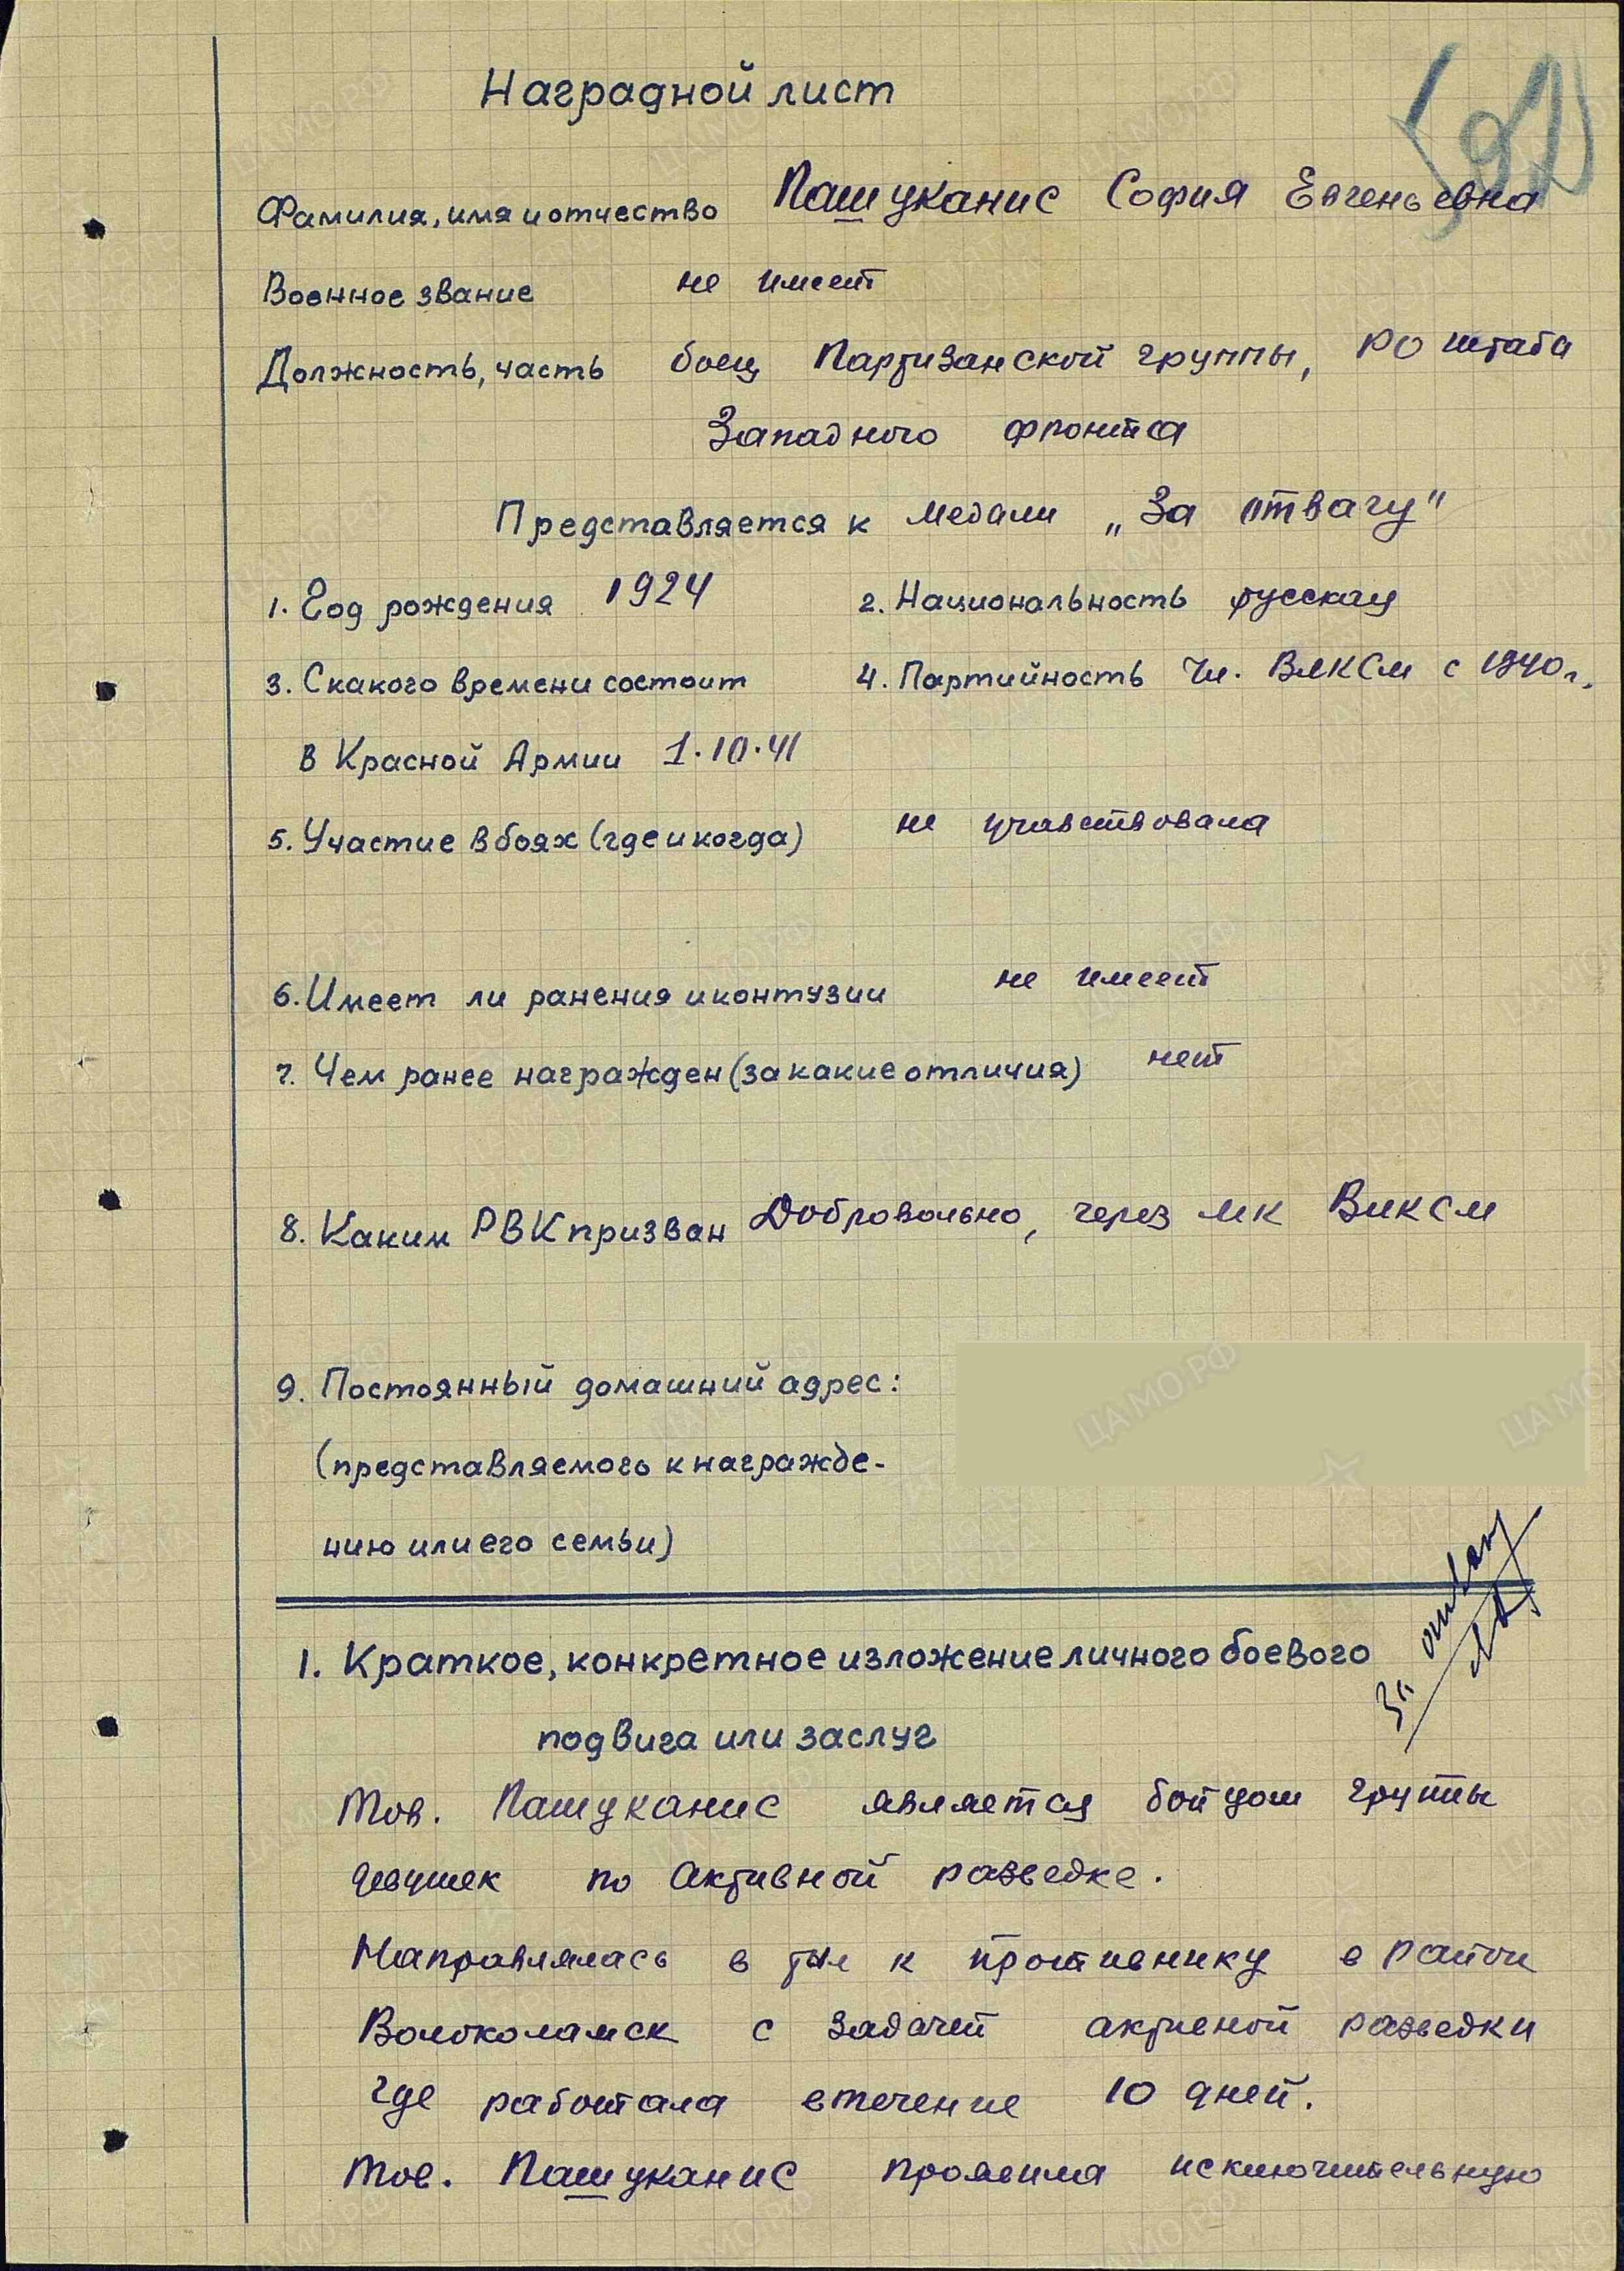 Наградной лист
Фамилия, имя и отчество Пашуканис София Евгеньевна
Военное звание не имеет
Должность, часть боец Партизанской группы, РО штаба
Западного фронта
Представляется к медали „За отвагу"
1. Год рождения 1924 2. Национальность русская
3. С какого времени состоит 4. Партийность Чл. ВЛКСМ с 1940 г.
в Красной Армии 1.10.41
5. Участие в боях (где и когда) не участвовала
6. Имеет ли ранения и контузии не имеет
7. Чем ранее награжден (за какие отличия) нет
8. Каким РВК призван Добровольно, через МК ВЛКСМ
9. Постоянный домашний адрес:
(представляемого к награжде-
нию или его семьи)
За отвагу
1. Краткое, конкретное изложение личного боевого
подвига или заслуг
Тов. Пашуканис является бойцом группы
девушек по активной разведке.
Направлялась в тыл к противнику в район
Волоколамск с задачей активной разведки
где работала втечение 10 дней.
Тов. Пашуканис проявила исключительную